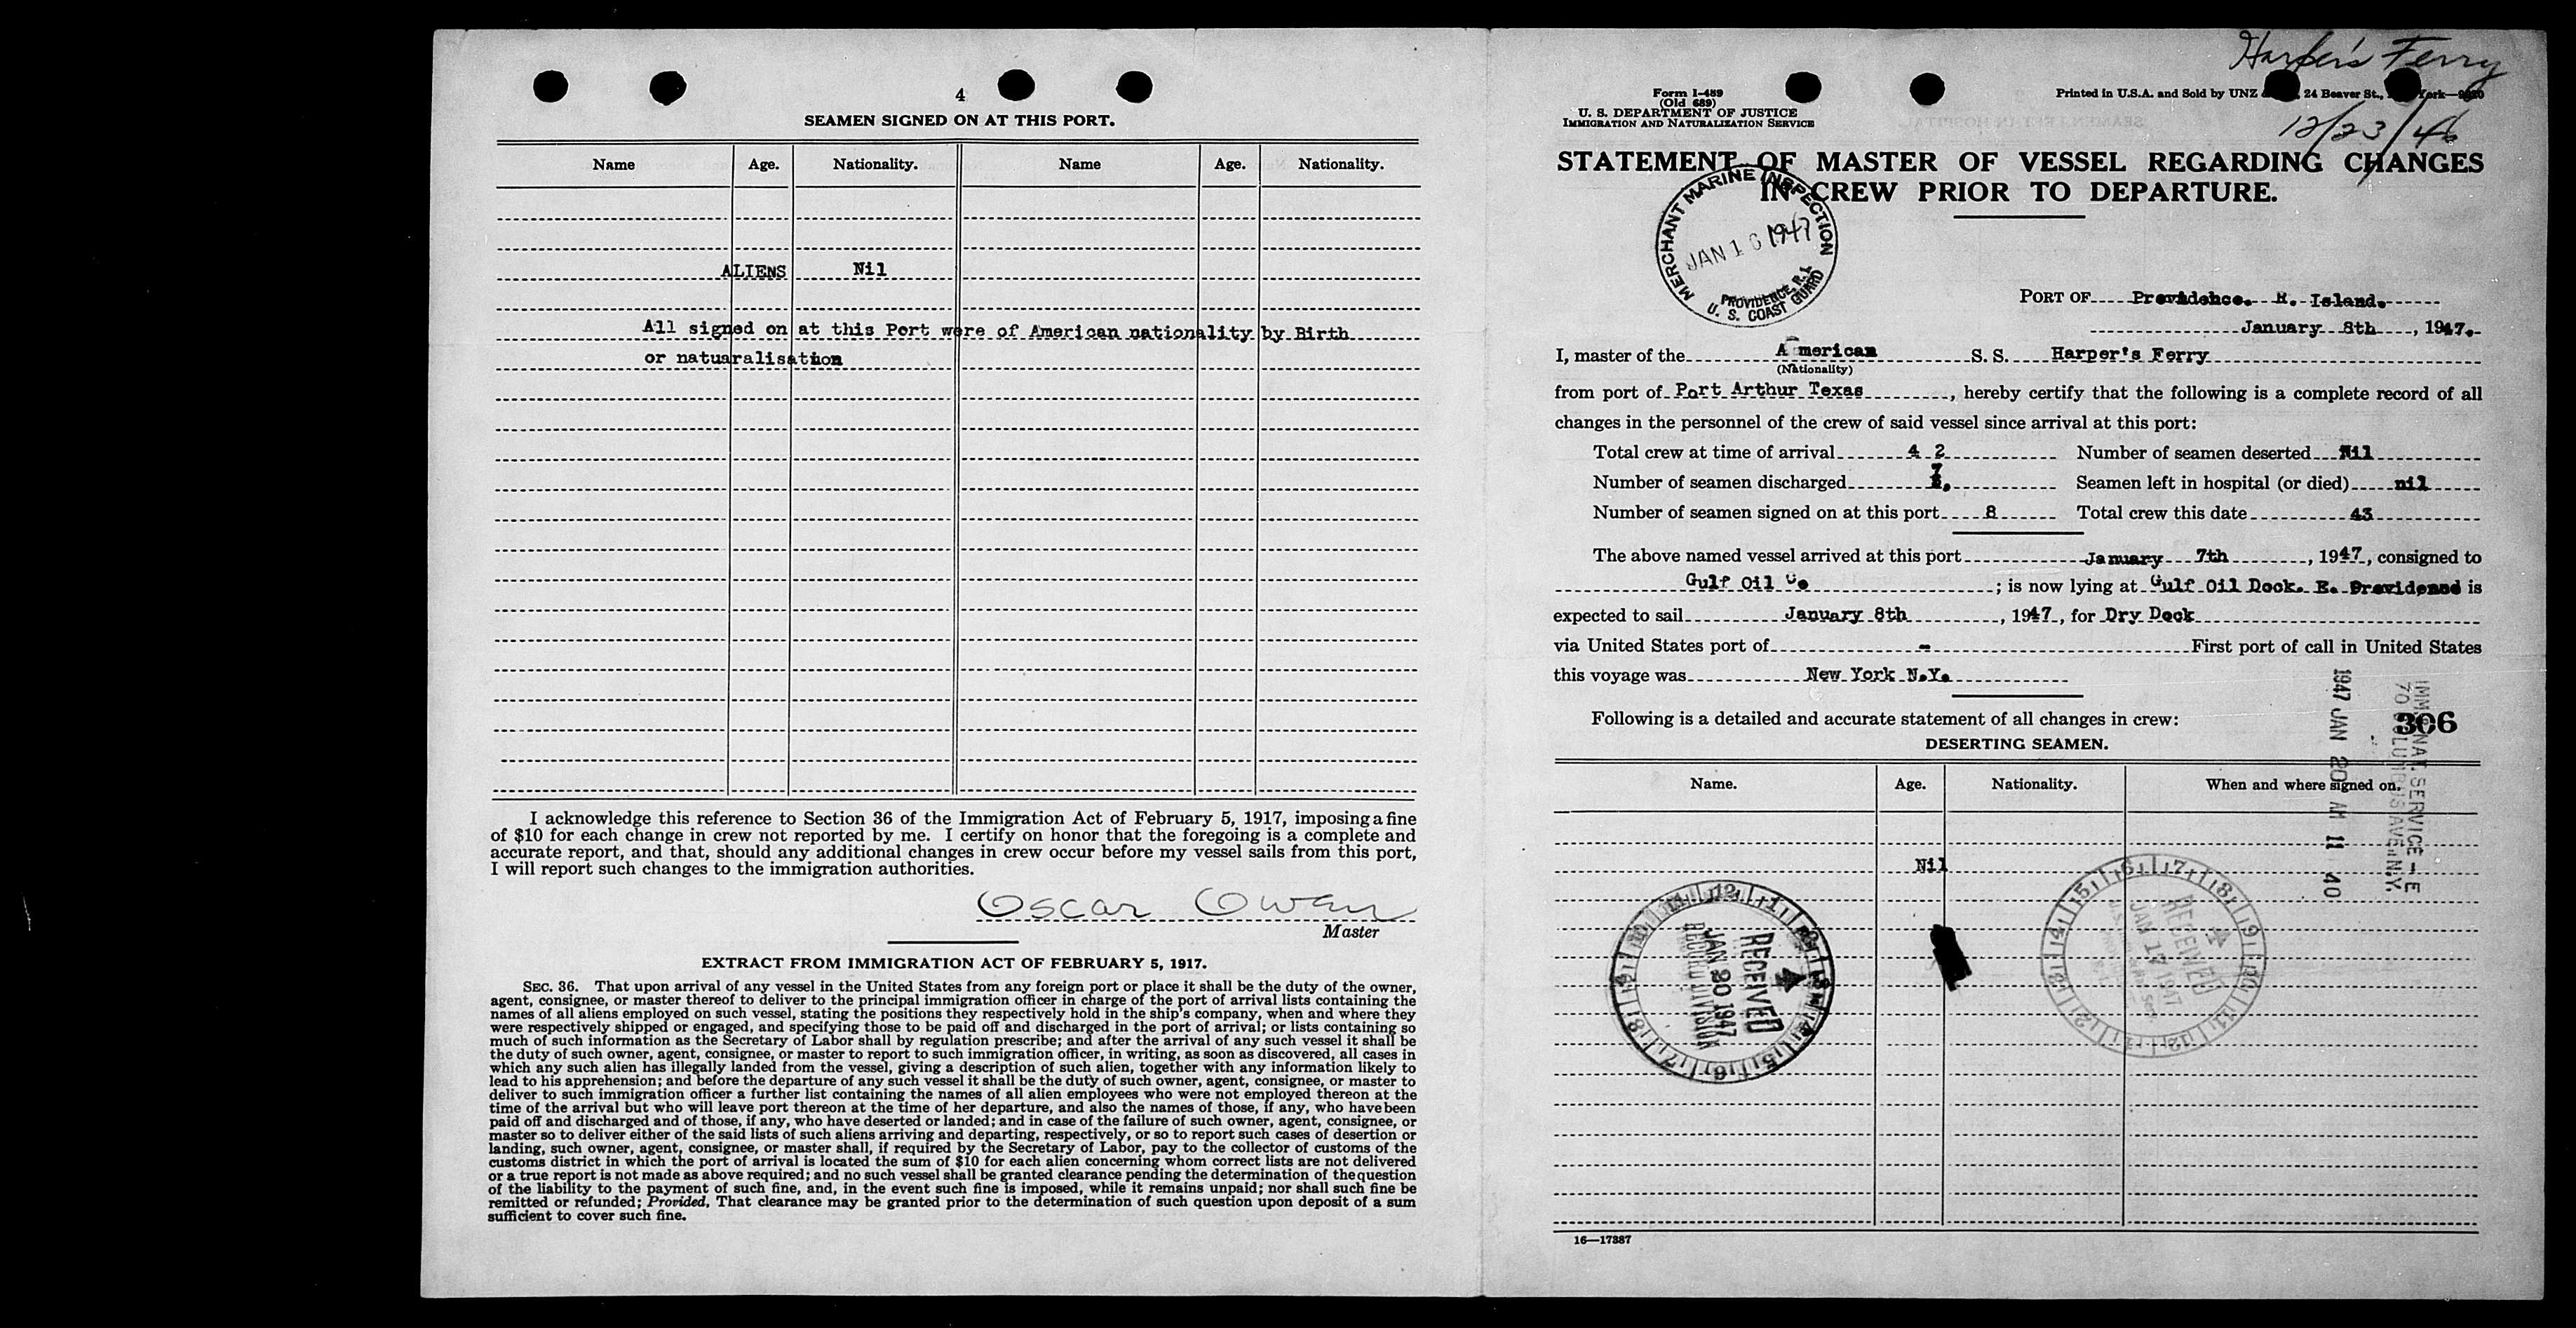 4
SEAMEN SIGNED ON AT THIS PORT.
Name Age. Nationality. Name Age. Nationality.
ALIENS Nil
All signed on at this Port were of American nationality by Birth
or natuaralisation
I acknowledge this reference to Section 36 of the Immigration Act of February 5, 1917, imposing a fine
of $10 for each change in crew not reported by me. I certify on honor that the foregoing is a complete and
accurate report, and that, should any additional changes in crew occur before my vessel sails from this port,
I will report such changes to the immigration authorities.
Oscar Owen
Master
EXTRACT FROM IMMIGRATION ACT OF FEBRUARY 5, 1917.
SEC. 36. That upon arrival of any vessel in the United States from any foreign port or place it shall be the duty of the owner,
agent, consignee, or master thereof to deliver to the principal immigration officer in charge of the port of arrival lists containing the
names of all aliens employed on such vessel, stating the positions they respectively hold in the ship's company, when and where they
were respectively shipped or engaged, and specifying those to be paid off and discharged in the port of arrival; or lists containing so
much of such information as the Secretary of Labor shall by regulation prescribe; and after the arrival of any such vessel it shall be
the duty of such owner, agent, consignee, or master to report to such immigration officer, in writing, as soon as discovered, all cases in
which any such alien has illegally landed from the vessel, giving a description of such alien, together with any information likely to
lead to his apprehension; and before the departure of any such vessel it shall be the duty of such owner, agent, consignee, or master to
deliver to such immigration officer a further list containing the names of all alien employees who were not employed thereon at the
time of the arrival but who will leave port thereon at the time of her departure, and also the names of those, if any, who have been
paid off and discharged and of those, if any, who have deserted or landed; and in case of the failure of such owner, agent, consignee, or
master so to deliver either of the said lists of such aliens arriving and departing, respectively, or so to report such cases of desertion or
landing, such owner, agent, consignee, or master shall, if required by the Secretary of Labor, pay to the collector of customs of the
customs district in which the port of arrival is located the sum of $10 for each alien concerning whom correct lists are not delivered
or a true report is not made as above required; and no such vessel shall be granted clearance pending the determination of the question
of the liability to the payment of such fine, and, in the event such fine is imposed, while it remains unpaid; nor shall such fine be
remitted or refunded; Provided, That clearance may be granted prior to the determination of such question upon deposit of a sum
sufficient to cover such fine.
Harper's Ferry
12/23/46
Form I-489
(Old 689)
U. S. DEPARTMENT OF JUSTICE
IMMIGRATION AND NATURALIZATION SERVICE
Printed in U.S.A. and Sold by UNZ 24 Beaver St., York
STATEMENT OF MASTER OF VESSEL REGARDING CHANGES
IN CREW PRIOR TO DEPARTURE.
MERCHANT MARINE INSPECTION
JAN 16 1947
PROVIDENCE, R. I.
U. S. COAST GUARD
PORT OF Providence. R. Island.
January 8th, 1947.
I, master of the American S. S. Harper's Ferry
(Nationality)
from port of Port Arthur Texas, hereby certify that the following is a complete record of all
changes in the personnel of the crew of said vessel since arrival at this port:
Total crew at time of arrival 4 2 Number of seamen deserted Nil
Number of seamen discharged 7 Seamen left in hospital (or died) nil
Number of seamen signed on at this port 8 Total crew this date 43
The above named vessel arrived at this port January 7th, 1947, consigned to
Gulf Oil Co; is now lying at Gulf Oil Dock. E. Providence is
expected to sail January 8th, 1947, for Dry Dock
via United States port of - First port of call in United States
this voyage was New York N.Y.
Following is a detailed and accurate statement of all changes in crew:
306
DESERTING SEAMEN.
Name. Age. Nationality. When and where signed on.
Nil
1947 JAN 20 AM 11 40
IMM. NAT. SERVICE - E
70 COLUMBUS AVE. N.Y.
RECEIVED
JAN 20 1947
RECORD DIVISION
RECEIVED
JAN 17 1947
16—17387